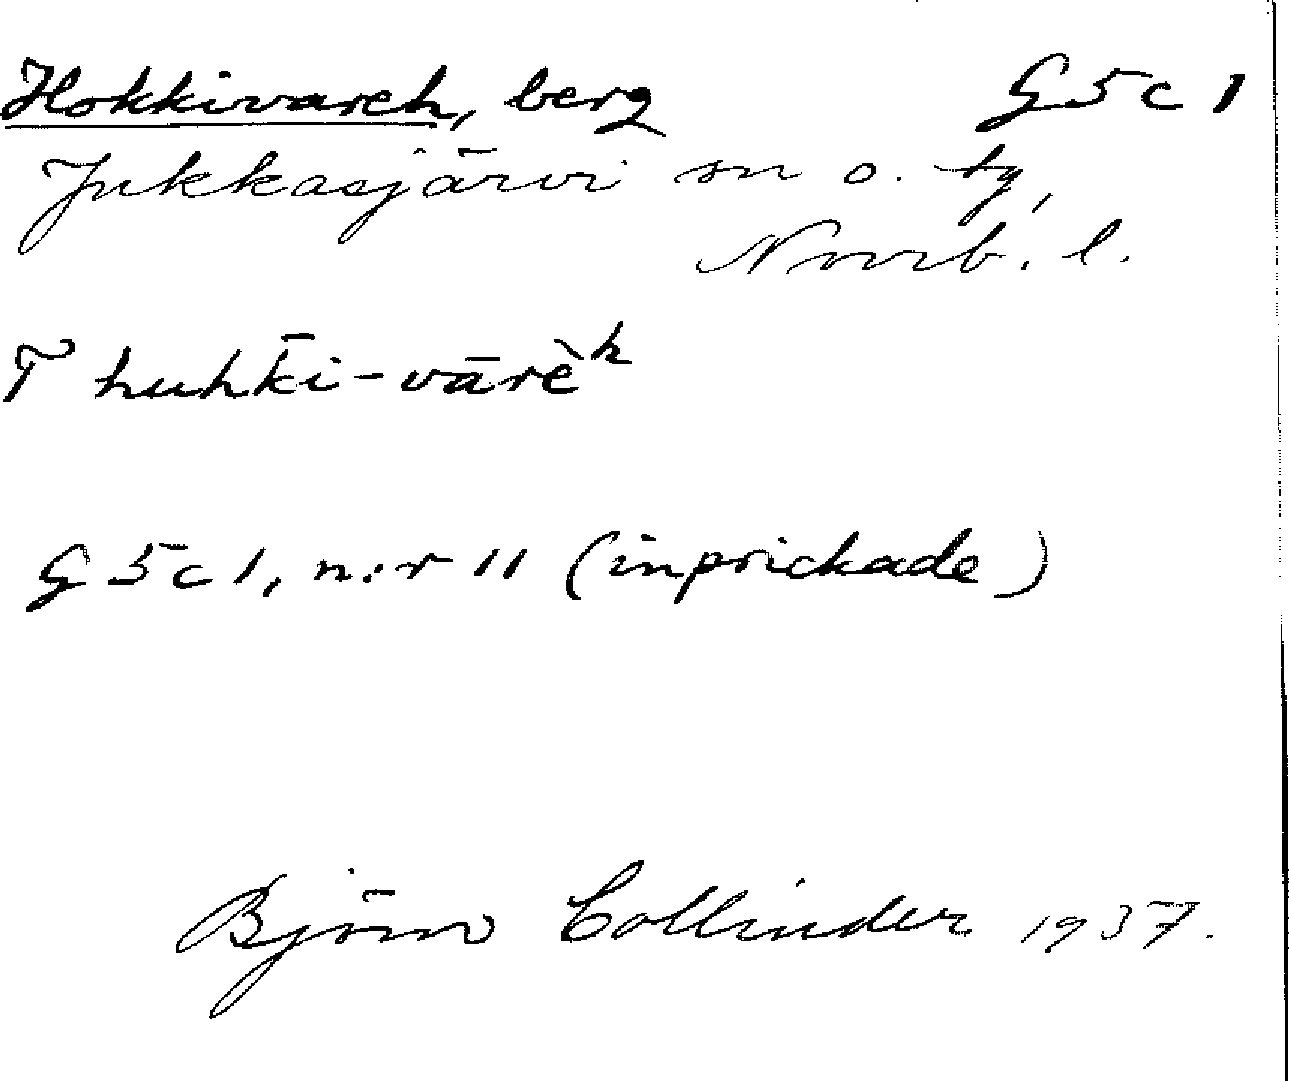 Hokkivareh, berg G 5 c 1
Jukkasjärvi sn o. tg,
Norrb. l.
T huhk̄i-vārèʰ
G 5 c 1, n:r 11 (inprickade)
Björn Collinder 1937.